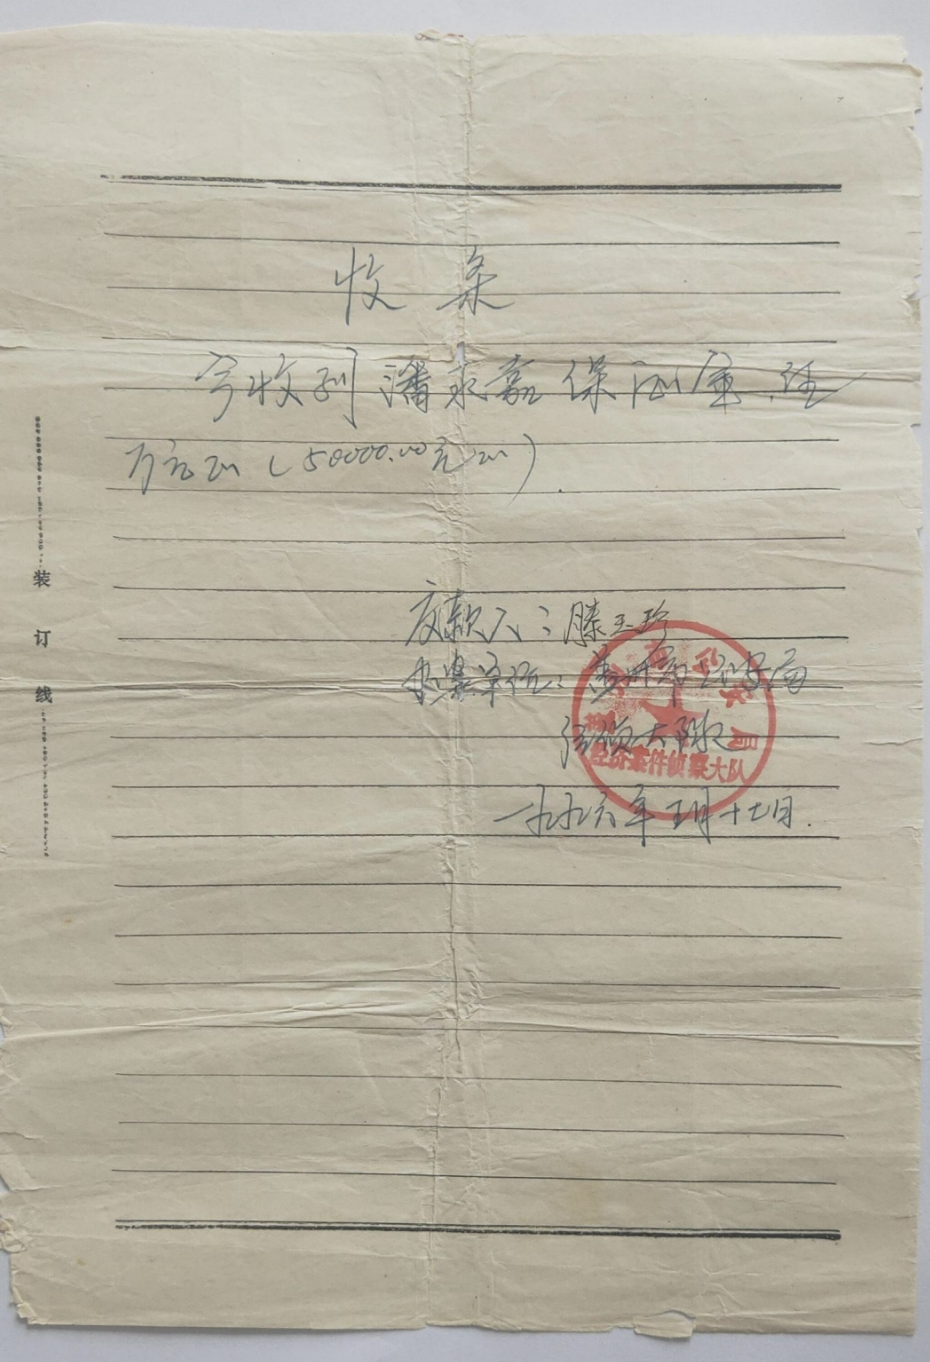 收条
今收到潘永嘉保证金伍
万元正(50000.00元正)
交款人:滕玉珍
办案单位:
经侦大队
公安局
经济案件侦察大队
一九九六年五月十七日.
装订线